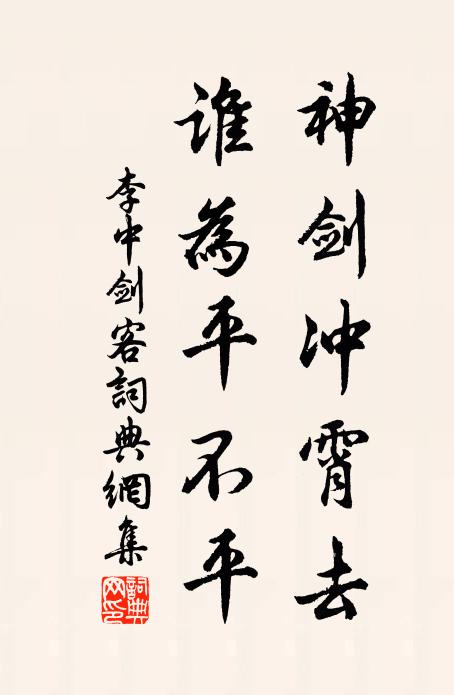 神剑冲霄去
谁為平不平
李中剑客詞典網集
詞典网印